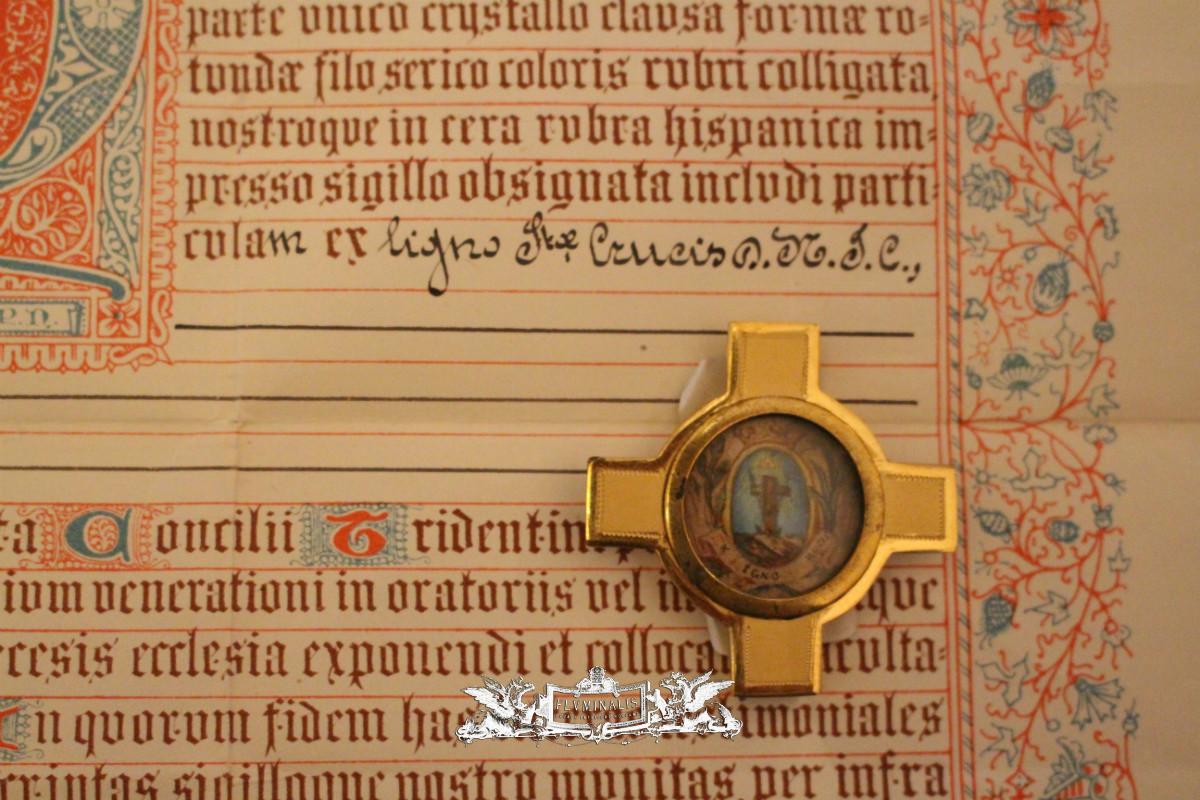 parte vnico crystallo clavsa formæ ro=
tvndæ filo serico coloris rvbri colligata,
nostroqve in cera rvbra hispanica im=
presso sigillo obsignata inclvdi parti=
cvlam ex ligno Stæ Crucis D.N.J.C.,
P.N.
ta Concilii Tridentin
ivm venerationi in oratoriis vel in qve
ecclesia exponendi et colloca cvlta=
In qvorvm fidem ha imoniales
sigilloqve nostro mvnitas per infra
LIGNO
FLVMINALIS